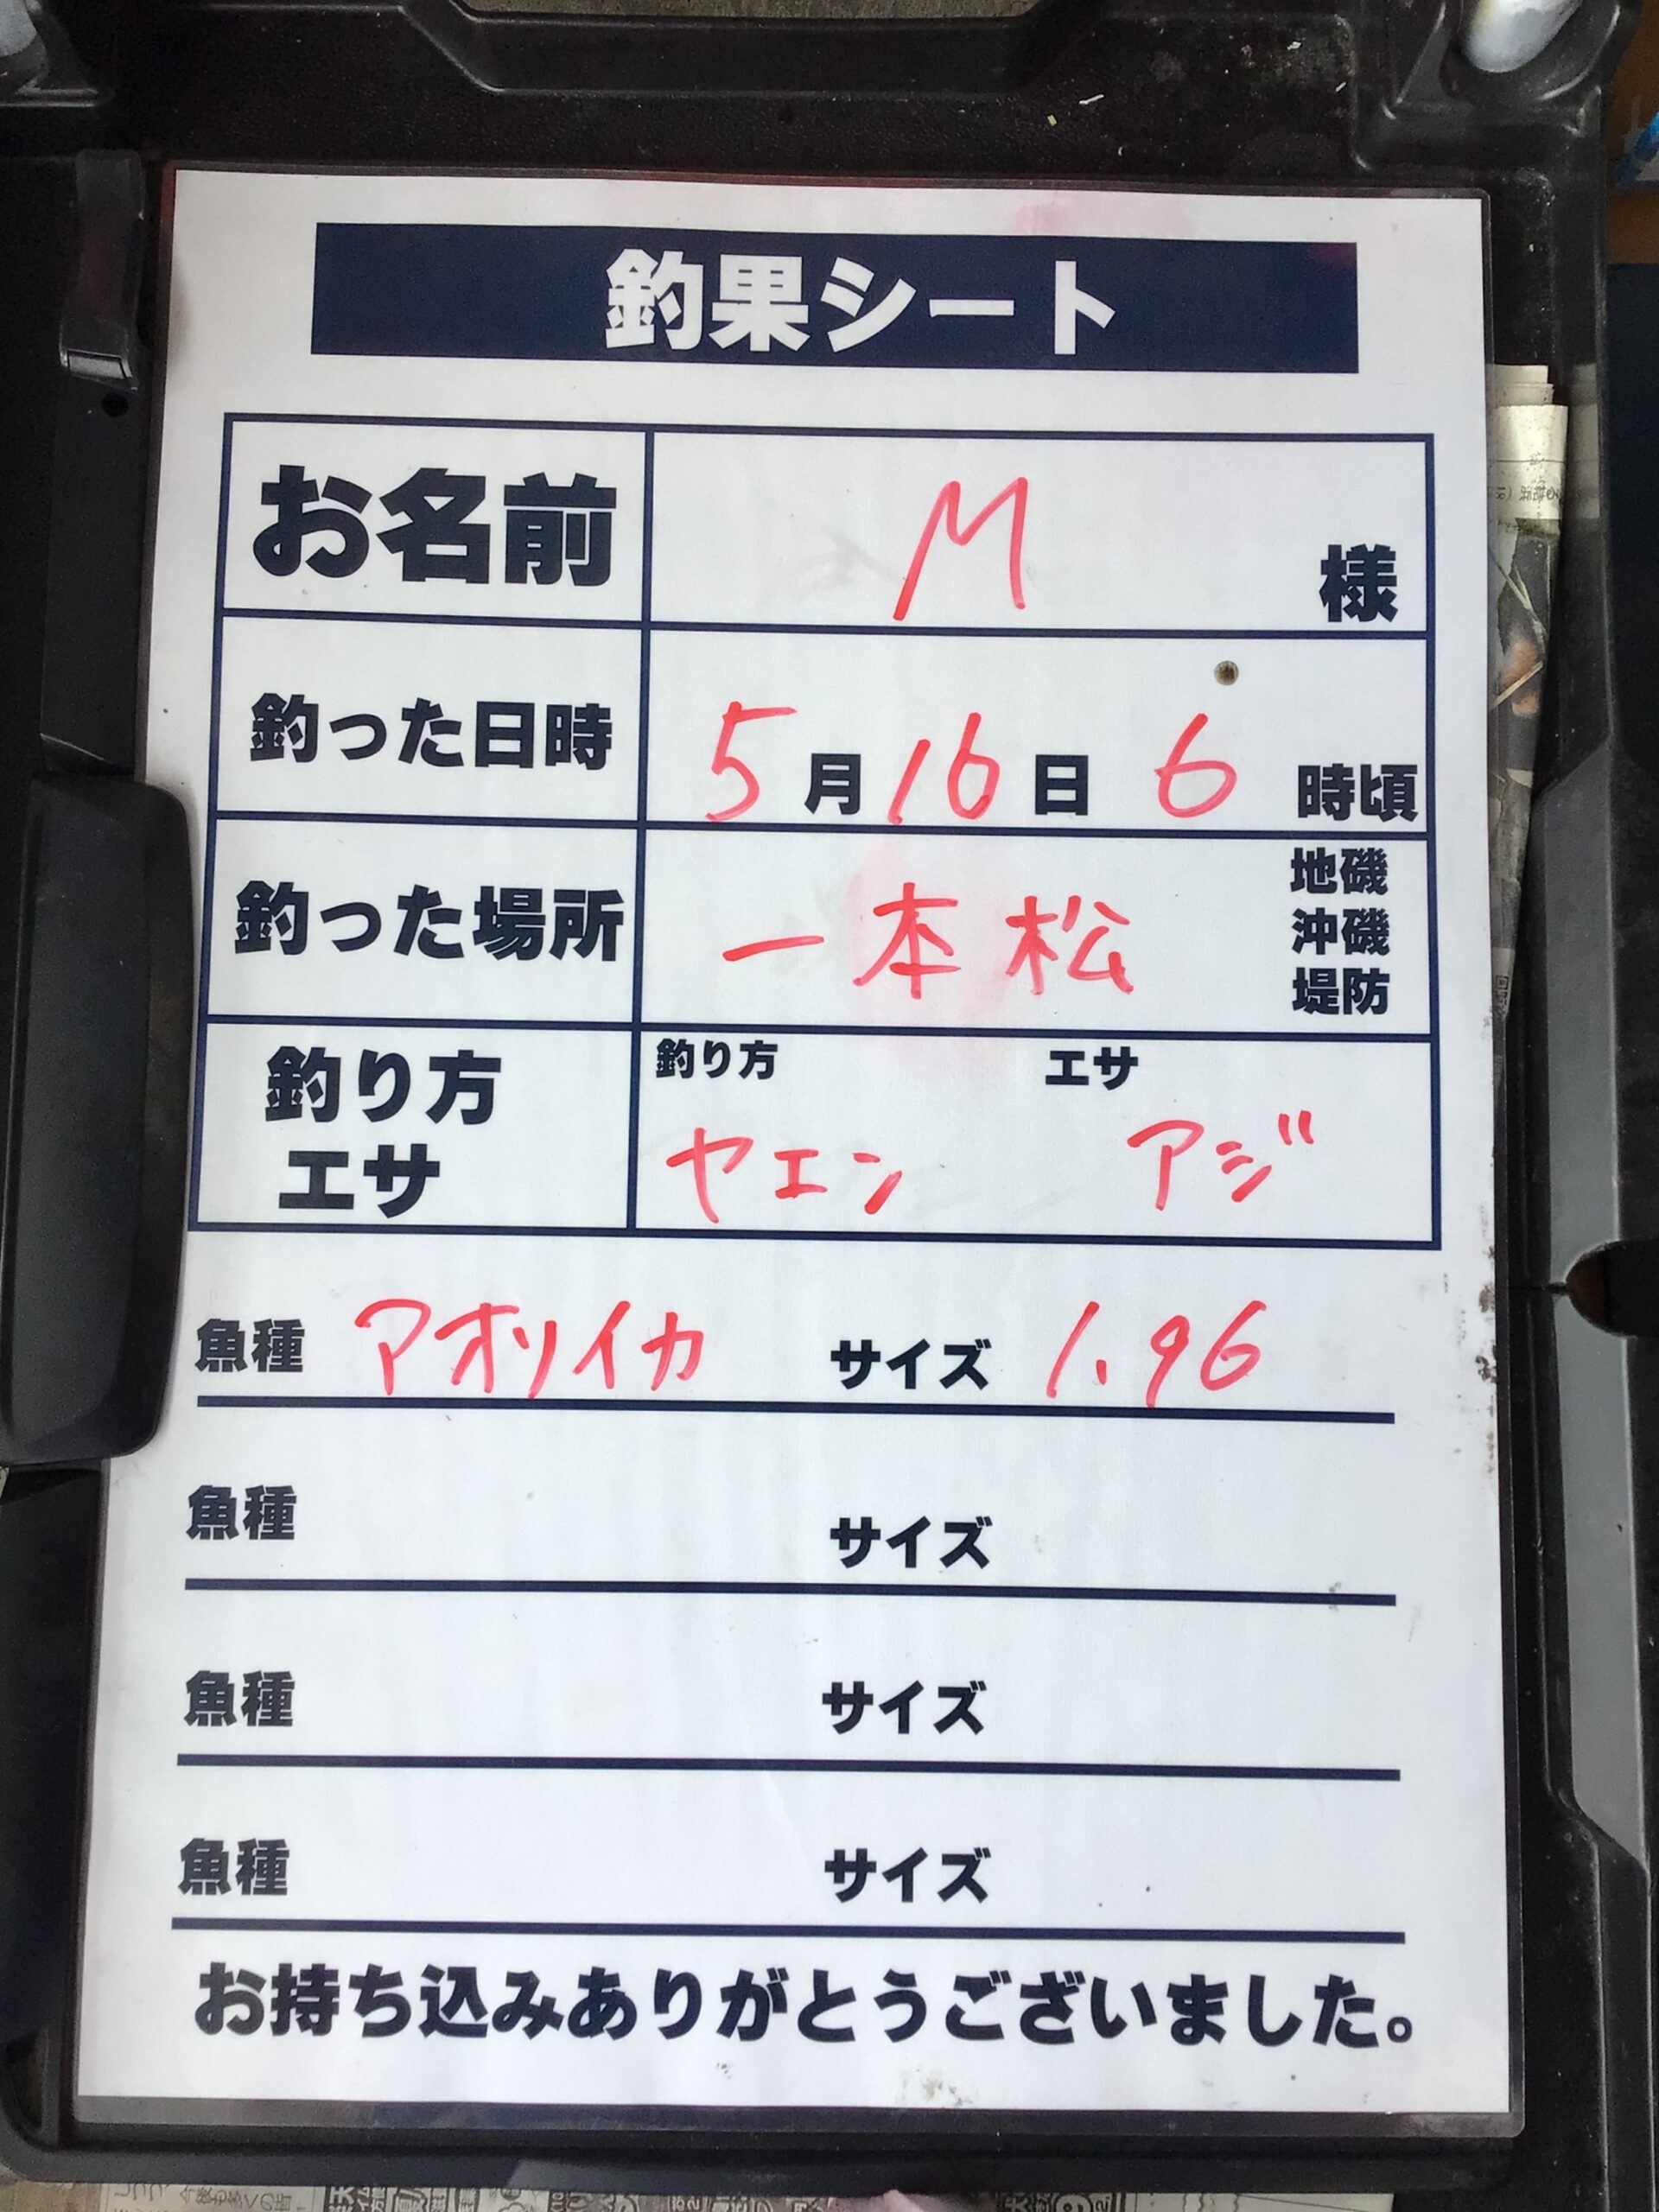 釣果シート
お名前 M 様
釣った日時 5月16日 6時頃
釣った場所 一本松 地磯
沖磯
堤防
釣り方 エサ
釣り方 エサ
ヤエン アジ
魚種 アオリイカ サイズ 1.96
魚種 サイズ
魚種 サイズ
魚種 サイズ
お持ち込みありがとうございました。